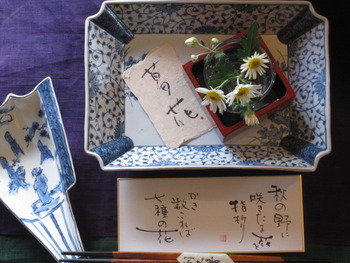 の花
秋の野に
咲きたる花を
指折り
かき
数ふれば
七種の花